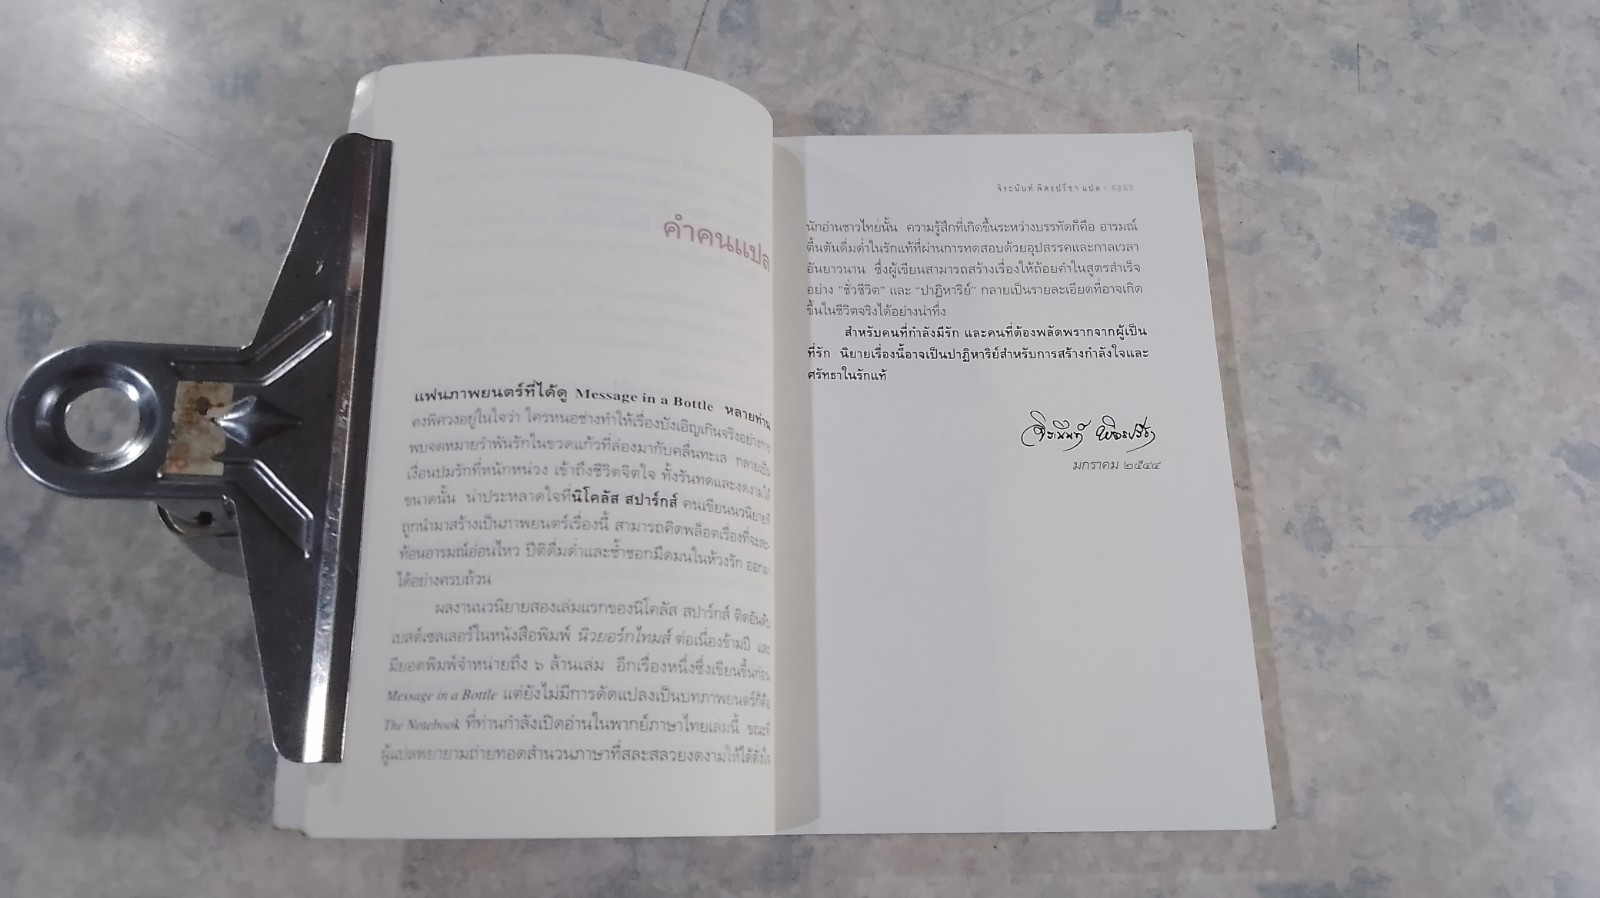 คำคนแปล
แฟนภาพยนตร์ที่ได้ดู Message in a Bottle หลายท่าน
คงพิศวงอยู่ในใจว่า ใครหนอช่างทำให้เรื่องบังเอิญเกินจริงอย่างการ
พบจดหมายรำพันรักในขวดแก้วที่ล่องมากับคลื่นทะเล กลายเป็น
เงื่อนปมรักที่หนักหน่วง เข้าถึงชีวิตจิตใจ ทั้งรันทดและงดงามได้
ขนาดนั้น น่าประหลาดใจที่นิโคลัส สปาร์กส์ คนเขียนนวนิยายที่
ถูกนำมาสร้างเป็นภาพยนตร์เรื่องนี้ สามารถคิดพล็อตเรื่องที่จะสะ-
ท้อนอารมณ์อ่อนไหว ปีติดื่มด่ำและช้ำชอกมืดมนในห้วงรัก ออกมา
ได้อย่างครบถ้วน
ผลงานนวนิยายสองเล่มแรกของนิโคลัส สปาร์กส์ ติดอันดับ
เบสต์เซลเลอร์ในหนังสือพิมพ์ นิวยอร์กไทมส์ ต่อเนื่องข้ามปี และ
มียอดพิมพ์จำหน่ายถึง ๖ ล้านเล่ม อีกเรื่องหนึ่งซึ่งเขียนขึ้นก่อน
Message in a Bottle แต่ยังไม่มีการดัดแปลงเป็นบทภาพยนตร์ก็คือ
The Notebook ที่ท่านกำลังเปิดอ่านในพากย์ภาษาไทยเล่มนี้ ขณะที่
ผู้แปลพยายามถ่ายทอดสำนวนภาษาที่สละสลวยงดงามให้ได้ดั่งใจ
จิระนันท์ พิตรปรีชา แปล
นักอ่านชาวไทยนั้น ความรู้สึกที่เกิดขึ้นระหว่างบรรทัดก็คือ อารมณ์
ตื้นตันดื่มด่ำในรักแท้ที่ผ่านการทดสอบด้วยอุปสรรคและกาลเวลา
อันยาวนาน ซึ่งผู้เขียนสามารถสร้างเรื่องให้ถ้อยคำในสูตรสำเร็จ
อย่าง "ชั่วชีวิต" และ "ปาฏิหาริย์" กลายเป็นรายละเอียดที่อาจเกิด
ขึ้นในชีวิตจริงได้อย่างน่าทึ่ง
สำหรับคนที่กำลังมีรัก และคนที่ต้องพลัดพรากจากผู้เป็น
ที่รัก นิยายเรื่องนี้อาจเป็นปาฏิหาริย์สำหรับการสร้างกำลังใจและ
ศรัทธาในรักแท้
จิระนันท์ พิตรปรีชา
มกราคม ๒๕๔๔